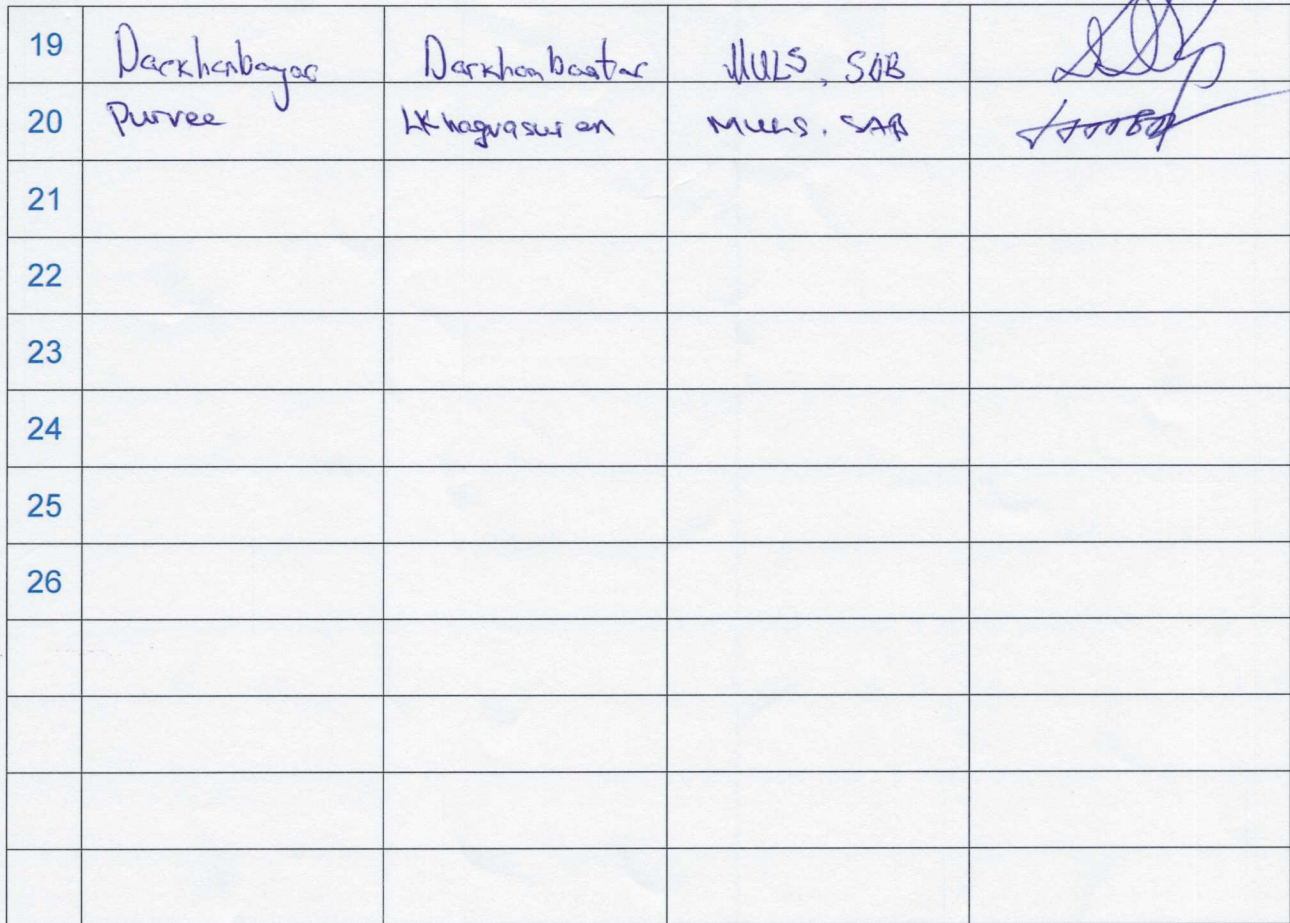 19 Darkhanbayar Darkhanbaatar MULS, SAB
20 Purvee Lkhagvasuren MULS. SAB
21
22
23
24
25
26